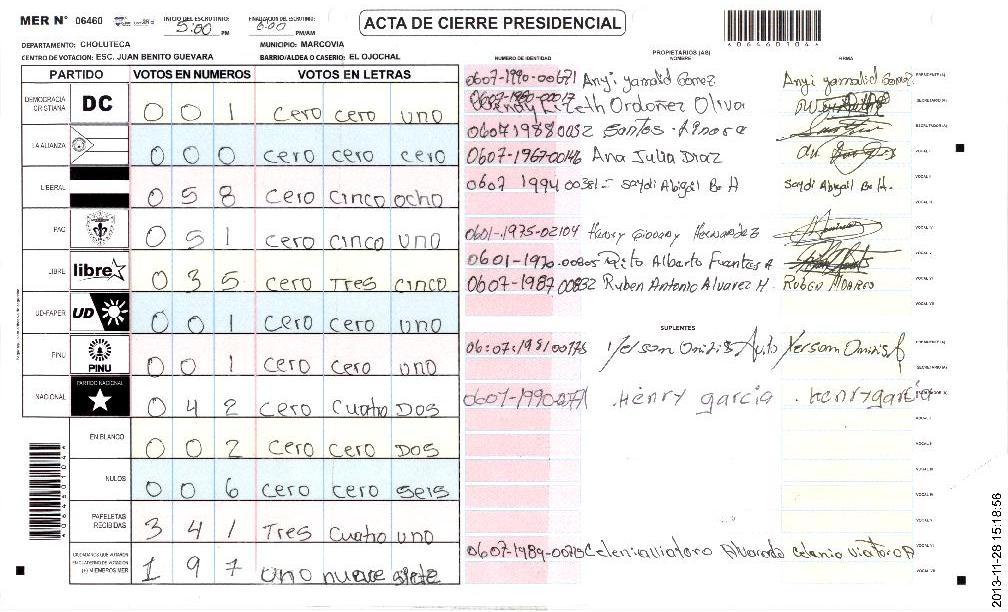 MER N° 06460
INICIO DEL ESCRUTINIO: 5:00 PM
FINALIZACION DEL ESCRUTINIO: 6:00 PM/AM
ACTA DE CIERRE PRESIDENCIAL
4064601044
DEPARTAMENTO: CHOLUTECA
MUNICIPIO: MARCOVIA
CENTRO DE VOTACION: ESC. JUAN BENITO GUEVARA
BARRIO/ALDEA O CASERIO: EL OJOCHAL
PARTIDO VOTOS EN NUMEROS VOTOS EN LETRAS
DEMOCRACIA CRISTIANA DC 0 0 1 cero cero uno
LA ALIANZA 0 0 0 cero cero cero
LIBERAL 0 5 8 cero cinco ocho
PAC 0 5 1 cero cinco uno
LIBRE libre 0 3 5 cero Tres cinco
UD-FAPER UD 0 0 1 cero cero uno
PINU PINU 0 0 1 cero cero uno
NACIONAL PARTIDO NACIONAL 0 4 2 cero cuatro Dos
EN BLANCO 0 0 2 cero cero Dos
NULOS 0 0 6 cero cero seis
PAPELETAS RECIBIDAS 3 4 1 Tres cuatro uno
CIUDADANOS QUE VOTARON EN CUADERNO DE VOTACION (+) MIEMBROS MER 1 9 7 uno nueve siete
PROPIETARIOS (AS)
NUMERO DE IDENTIDAD NOMBRE FIRMA
0607-1990-00671 Anyi yamalid Gomez Anyi yamalid Gomez PRESIDENTE (A)
Ordoñez Oliva SECRETARIO (A)
0607 1988 0032 Santos ESCRUTADOR (A)
0607-1967-00146 Ana Julia Diaz VOCAL I
0607 1994 00381- Saydi Abigail B H Saydi Abigail B H. VOCAL II
VOCAL III
0601-1975-02104 Henry Giovany Hernandez VOCAL IV
0601-1970-00805 Tito Alberto Fuentes A VOCAL V
0607-1987 00832 Ruben Antonio Alvarez H. VOCAL VI
VOCAL VII
SUPLENTES
06:07:1981 00775 Yerson PRESIDENTE (A)
SECRETARIO (A)
Henry garcia Henry garcia
VOCAL I
VOCAL II
VOCAL III
VOCAL IV
VOCAL V
0607-1989- Alvarado VOCAL VI
VOCAL VII
2013-11-28 15:18:56